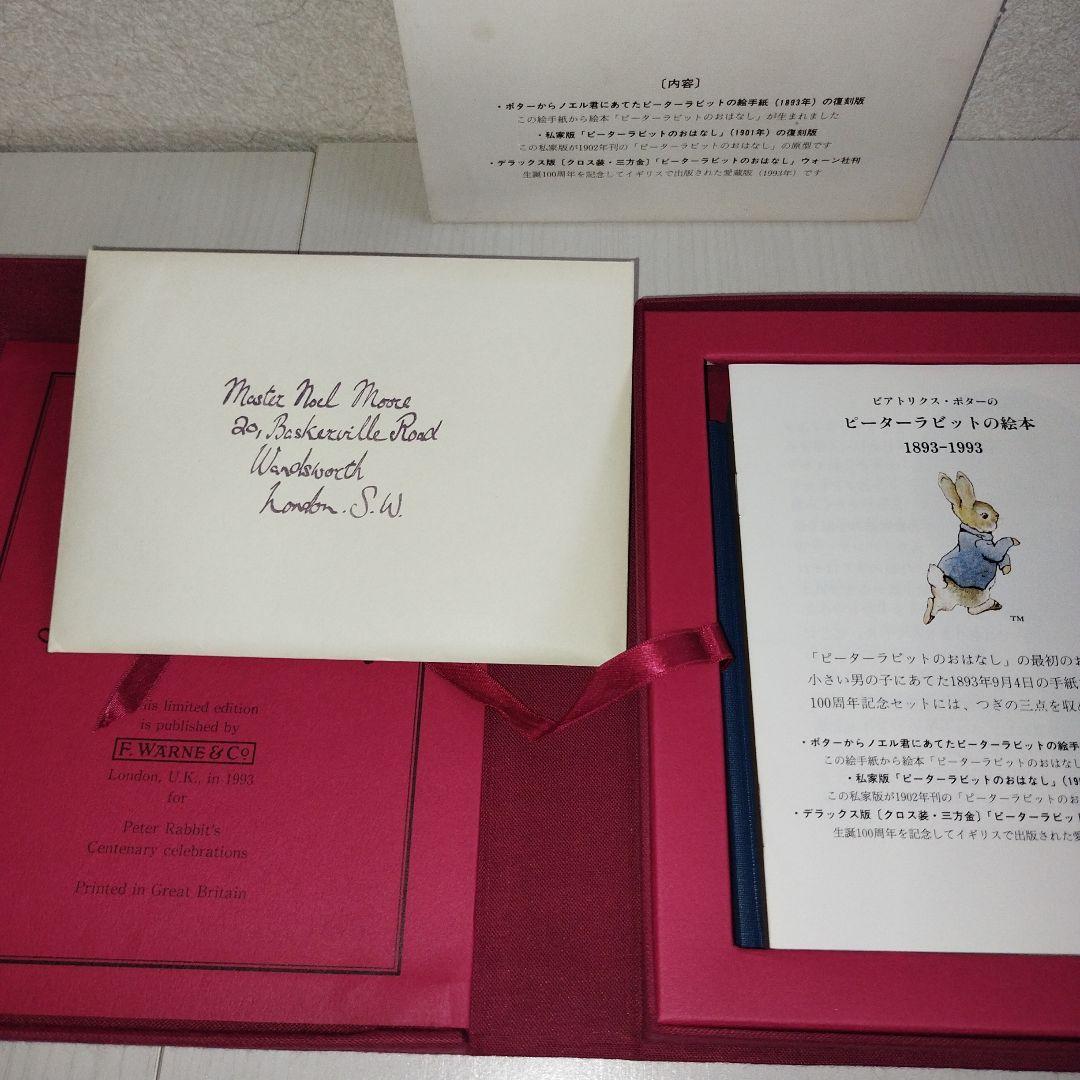 〔内容〕
・ポターからノエル君にあてたピーターラビットの絵手紙（1893年）の復刻版
この絵手紙から絵本「ピーターラビットのおはなし」が生まれました
・私家版「ピーターラビットのおはなし」（1901年）の復刻版
この私家版が1902年刊の「ピーターラビットのおはなし」の原型です
・デラックス版〔クロス装・三方金〕「ピーターラビットのおはなし」ウォーン社刊
生誕100周年を記念してイギリスで出版された愛蔵版（1993年）です
Master Noel Moore
20, Baskerville Road
Wandsworth
London. S.W.
his limited edition
is published by
F. WARNE & Co
London, U.K., in 1993
for
Peter Rabbit's
Centenary celebrations
Printed in Great Britain
ビアトリクス・ポターの
ピーターラビットの絵本
1893-1993
TM
「ピーターラビットのおはなし」の最初のお
小さい男の子にあてた1893年9月4日の手紙
100周年記念セットには、つぎの三点を収め
・ポターからノエル君にあてたピーターラビットの絵手
この絵手紙から絵本「ピーターラビットのおはなし
・私家版「ピーターラビットのおはなし」（19
この私家版が1902年刊の「ピーターラビットのおは
・デラックス版〔クロス装・三方金〕「ピーターラビット
生誕100周年を記念してイギリスで出版された愛